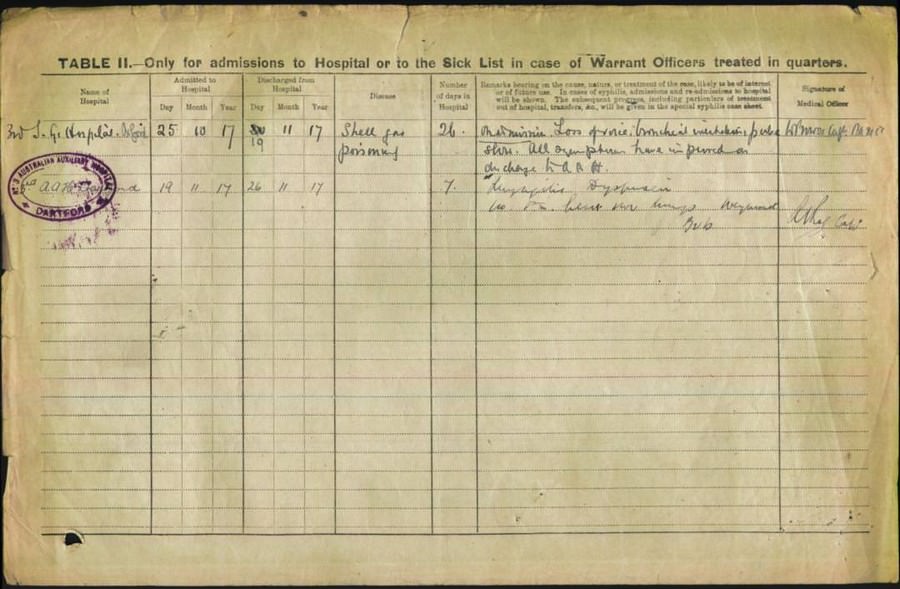 TABLE II.—Only for admissions to Hospital or to the Sick List in case of Warrant Officers treated in quarters.
Name of Hospital
Admitted to Hospital
Day Month Year
Discharged from Hospital
Day Month Year
Disease
Number of days in Hospital
Remarks bearing on the cause, nature, or treatment of the case, likely to be of interest
or of future use. In cases of syphilis, admissions and re-admissions to hospital
will be shown. The subsequent progress, including particulars of treatment
out of hospital, transfers, &c., will be given in the special syphilis case sheet.
Signature of
Medical Officer
3rd S. G. Hospital. Oxford 25 10 17 19 11 17 Shell gas poisoning 26. On admission. Loss of voice, bronchial irritation, pulse
slow. All symptoms have improved on
discharge to A. A. H.
No 3 AUSTRALIAN AUXILIARY HOSPITAL
DARTFORD
19 11 17 26 11 17 7. Laryngitis Dyspnoea
heart lungs Weymouth